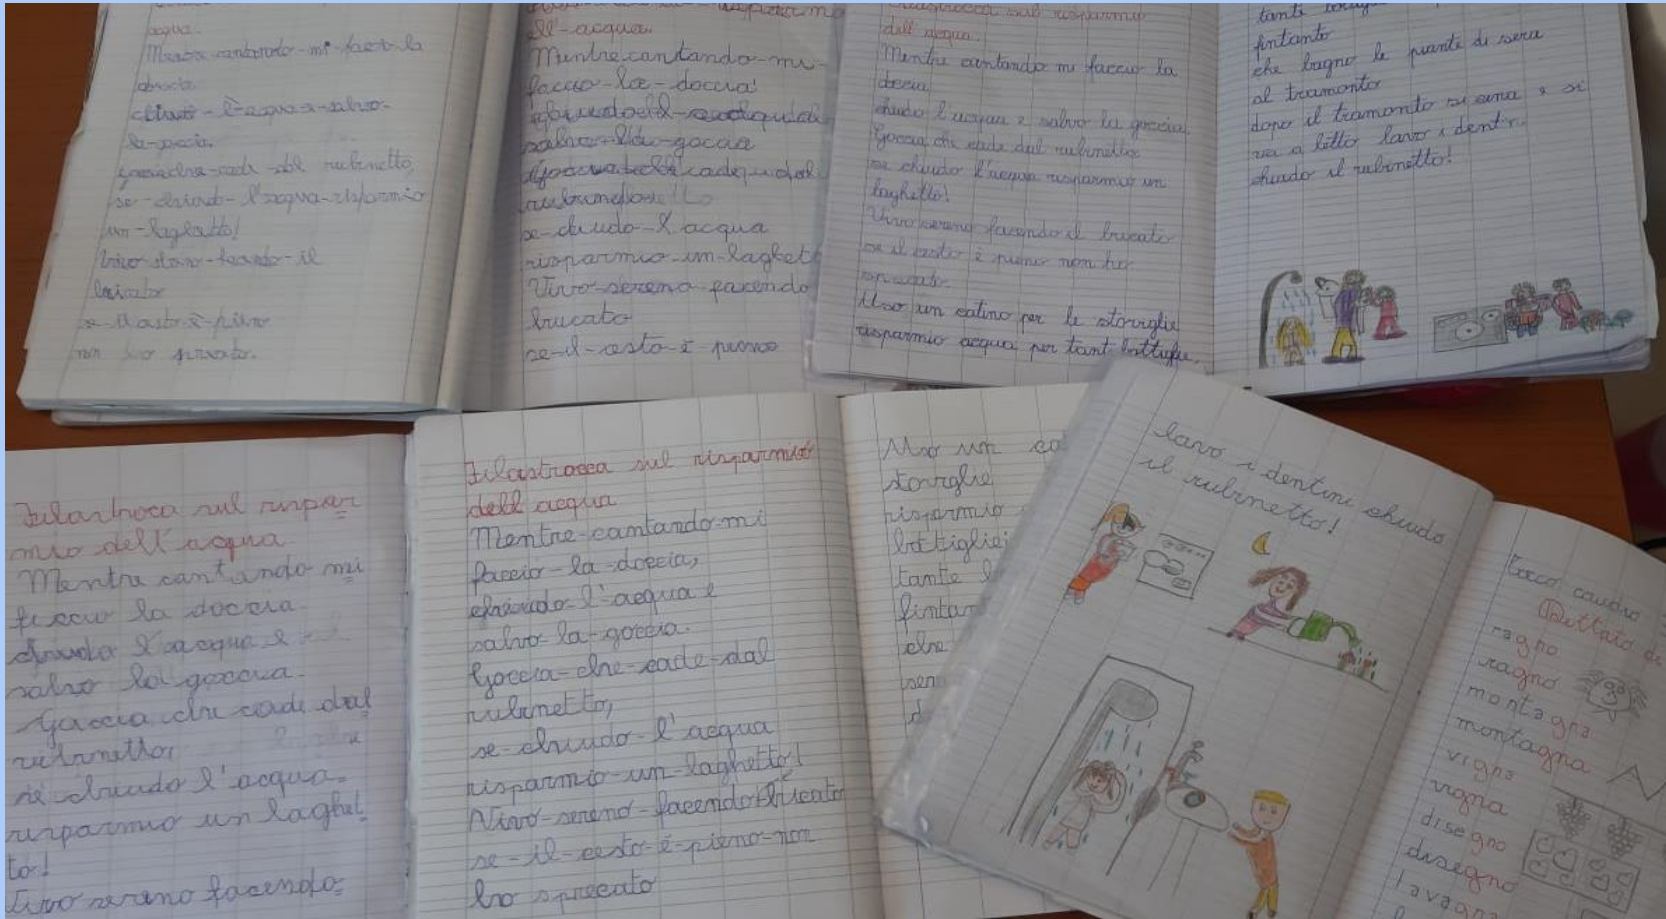 acqua.
Mentre-cantando-mi-faccio-la
doccia
-l'acqua-e-salvo-
la-goccia.
rubinetto,
se-chiudo-l'acqua-risparmio
un-laghetto!
Vivo il
se
non ho sprecato.
ll'-acqua.
Mentre-cantando-mi-
faccio-la-doccia
salvo
rubinetto
se-chiudo-l'acqua
risparmio-un-laghett
Vivo-sereno-facendo
brucato
se-il-cesto-è-pieno
filastrocca sul risparmio
dell'acqua.
Mentre cantando mi faccio la
doccia,
chiudo l'acqua e salvo la goccia.
Goccia che cade dal rubinetto
se chiudo l'acqua risparmio un
laghetto!
Vivo sereno facendo il bucato
se il cesto è pieno non ho
sprecato.
Uso un catino per le stoviglie
risparmio acqua per tant bottiglie.
tante
fintanto
che bagno le piante di sera
al tramonto
dopo il tramonto si cena e si
va a letto lavo i dentini
chiudo il rubinetto!
Filastroca sul rispar
mio dell'acqua
Mentre cantando mi
faccio la doccia
chiudo l'acqua e
salvo la goccia.
Goccia che cade dal
rubinetto,
se chiudo l'acqua
risparmio un laghet
to!
Vivo sereno facendo
Filastrocca sul risparmio
dell acqua
Mentre-cantando-mi
faccio-la-doccia,
chiudo-l'acqua e
salvo-la-goccia.
Goccia-che-cade-dal
rubinetto,
se-chiudo-l'acqua
risparmio-un-laghetto!
Vivo-sereno-facendo-bucato
se-il-cesto-è-pieno-non
ho sprecato
Uso un ca
stoviglie
risparmio
bottiglie
tante
fintan
che
lavo i dentini chiudo
il rubinetto!
Dettato di
ragno
ragno
montagna
montagna
vigna
vigna
disegno
disegno
lavagn